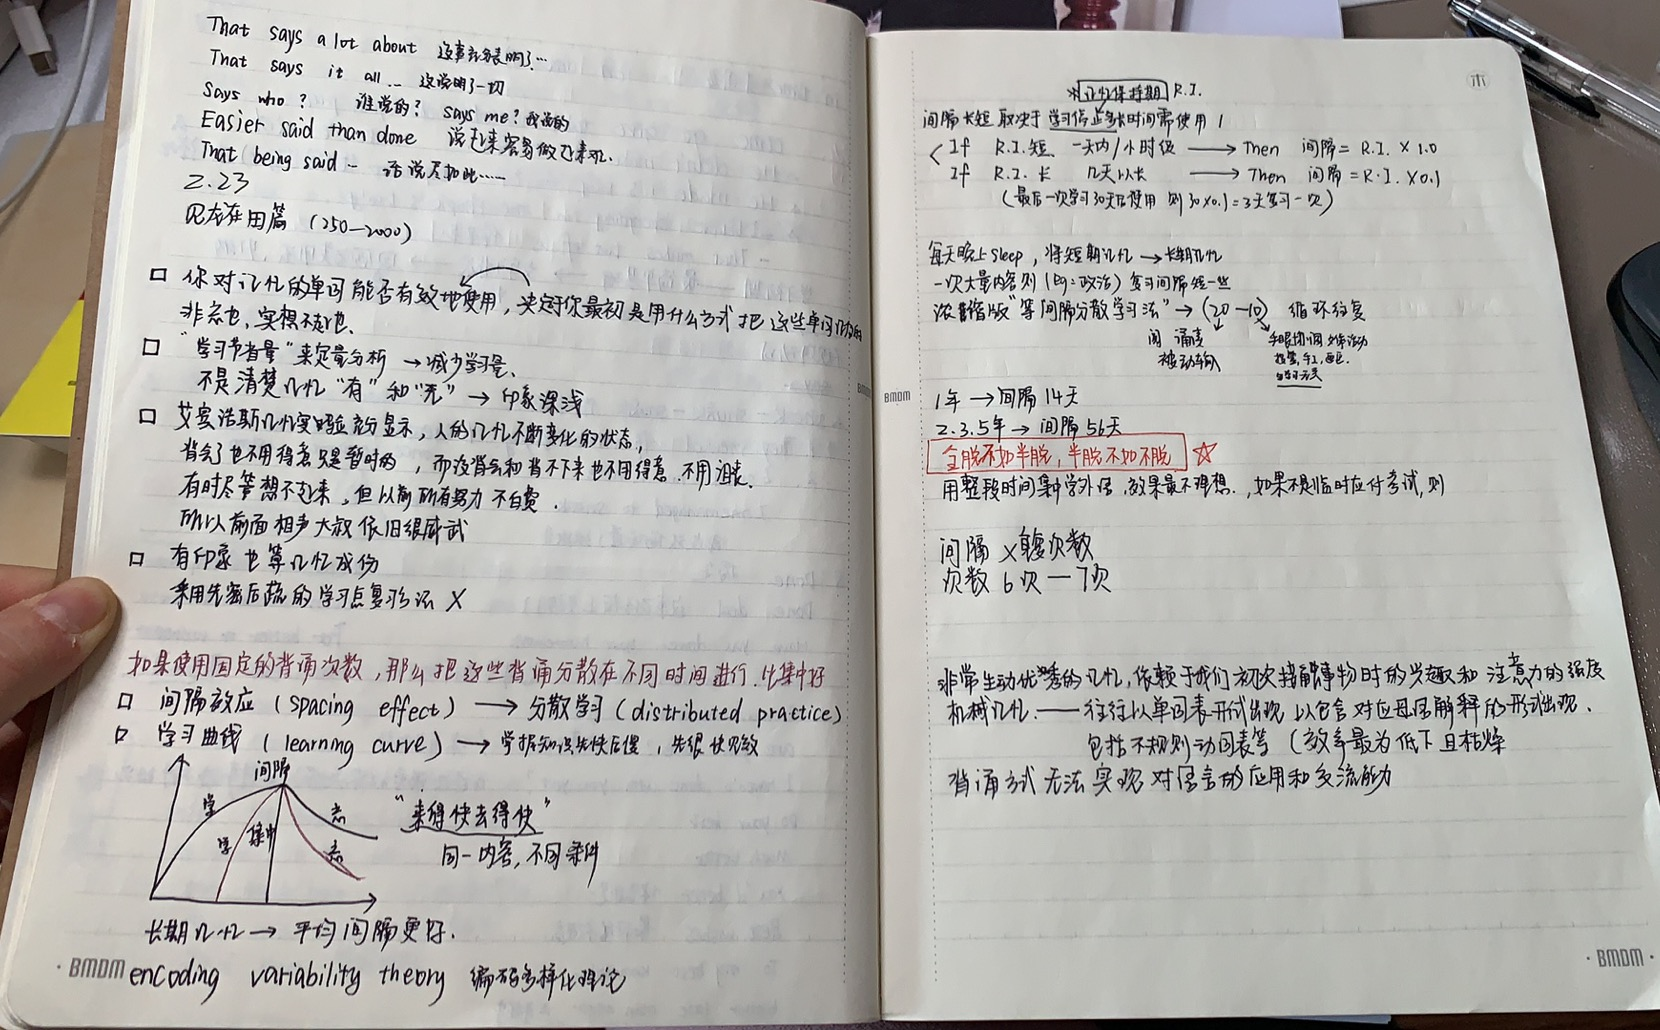 That says a lot about 这事充分表明了…
That says it all … 这说明了一切
Says who? 谁说的? says me? 我说的
Easier said than done 说起来容易做起来难.
That being said … 话说尽如此……
2.23
(250—2000)
你对记忆的单词能否有效地使用,决定于你最初是用什么方式把这些单词
非忘也,实想不起也.
"学习节省量"来定量分析 → 减少学习量.
不是清楚记忆"有"和"无" → 印象深浅
艾宾浩斯记忆实验充分显示,人的记忆不断变化的状态,
背会了也不用得意只是暂时的,而没背会和背不下来也不用得意.不用沮丧.
有时尽管想不起来,但以前所有努力不白费.
所以前面相声大叔依旧很威武
有印象也算记忆成份
采用先密后疏的学习点复习方法 X
如果使用固定的背诵次数,那么把这些背诵分散在不同时间进行.比集中好
间隔效应 (spacing effect) → 分散学习 (distributed practice)
学习曲线 (learning curve) → 掌握知识先快后慢,先很快见效
间隔
学 忘
学 集中 忘
"来得快去得快"
同一内容,不同条件
长期记忆 → 平均间隔更好.
BMDM
encoding variability theory 编码多样化理论
对记忆保持期 R.I.
间隔长短取决于学习停止多长时间需使用!
If R.I.短 一天内/小时级 → Then 间隔= R.I. × 1.0
If R.I. 长 几天以长 → Then 间隔 = R.I. × 0.1
(最后一次学习30天后使用 则 30×0.1=3天复习一次)
每天晚上sleep,将短期记忆 → 长期记忆
一次大量内容则 (如:政治) 复习间隔短一些
浓缩版"等间隔分散学习法" → (20—10) 循环往复
诵读
被动输入
1年 → 间隔14天
2.3.5年 → 间隔56天
全脱不如半脱,半脱不如不脱 ☆
用整段时间集中学外语,效果最不理想.,如果不是临时应付考试,则
BMDM
间隔 × 次数
次数 6次—7次
非常生动优秀的记忆,依赖于我们初次接触事物时的兴趣和注意力的强度
机械记忆. —— 往往以单词表形式出现 以包含对应母语解释的形式出现.
包括不规则动词表等 (效率最为低下且枯燥
背诵方式无法实现对语言的应用和交流能力
BMDM